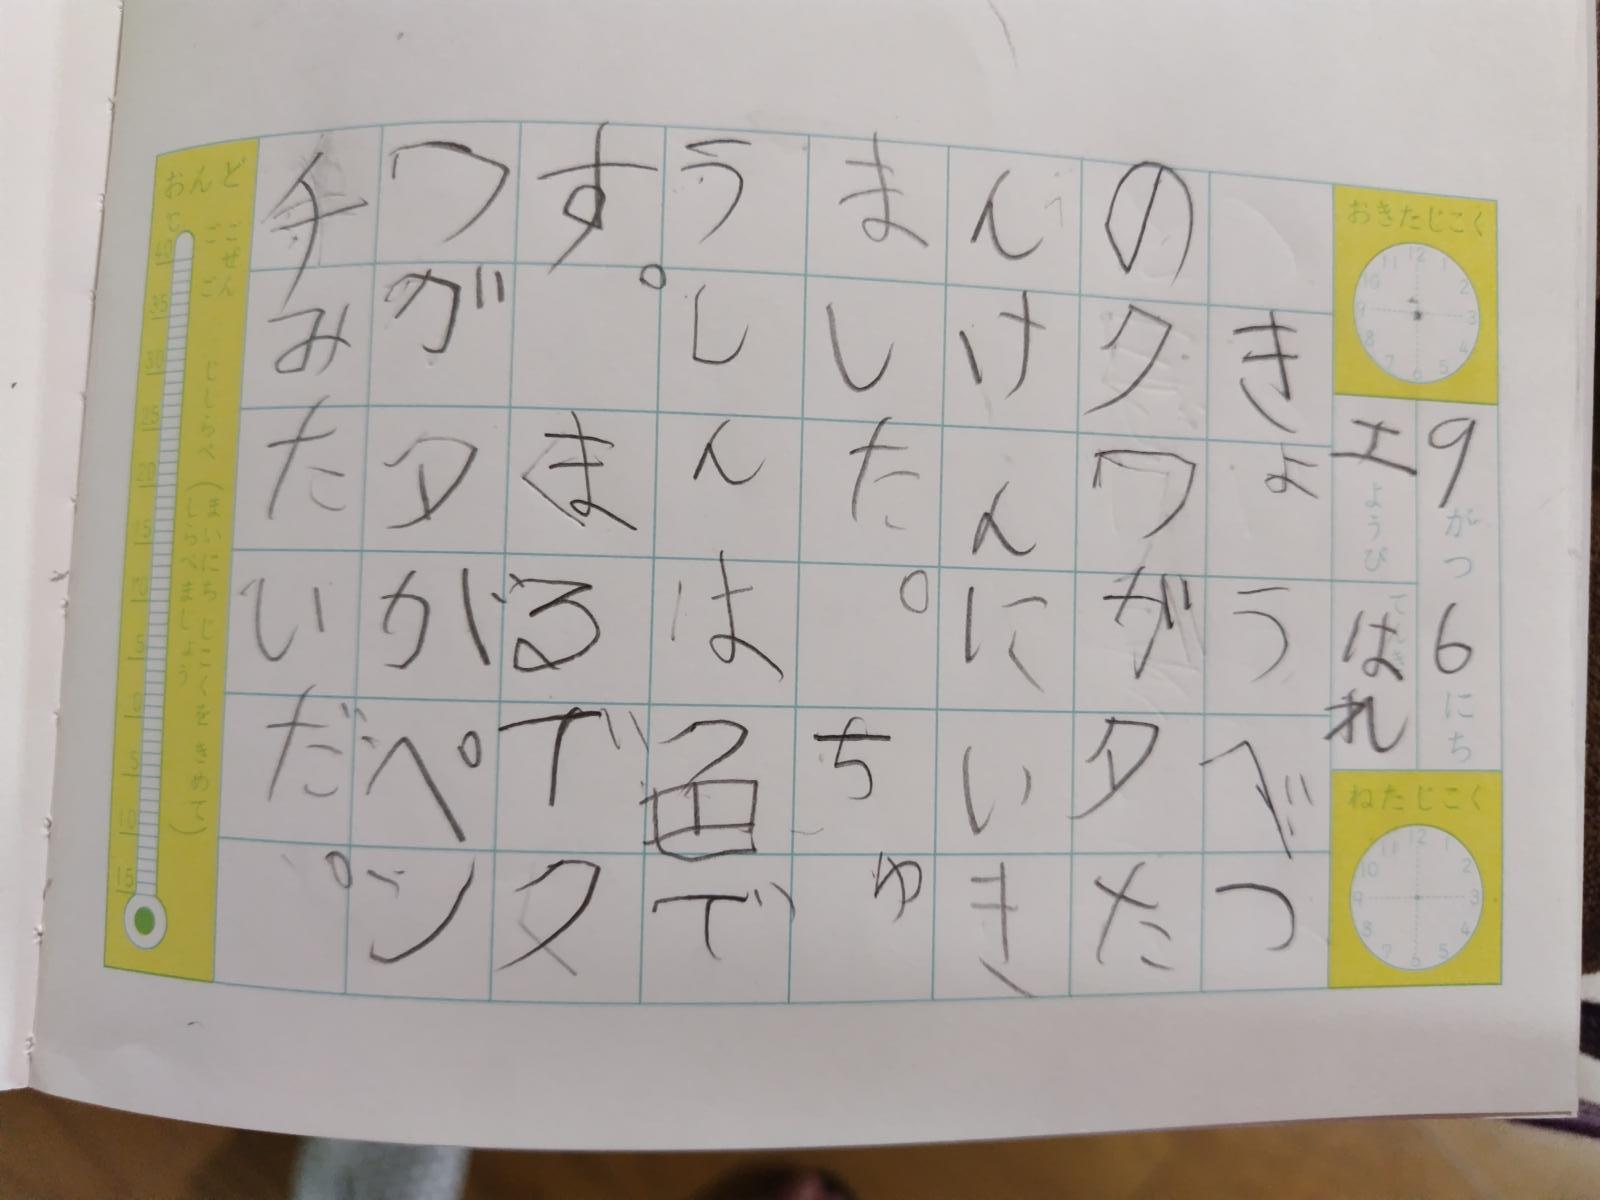 おきたじこく
9がつ6にち
土ようび
てんき はれ
ねたじこく
きょうべつ
のクワガタた
んけんにいき
ました。ちゅ
うしんは色で
す。まるでク
ワガタがペン
チみたいだ。
おんど ごぜん ごご じしらべ
(まいにち じこくを きめて しらべましょう)